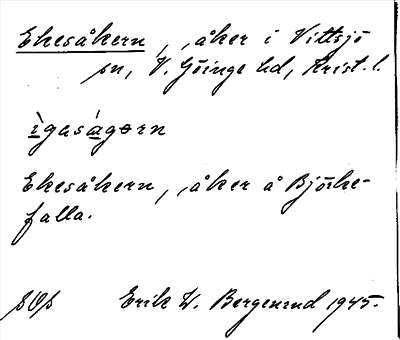 Ekesåkern, , åker i Vittsjö
sn, V. Göinge hd, Krist. l.
ìgaságørn
Ekesåkern, , åker å Bjärke-
falla.
Erik W. Bergenrud 1945.